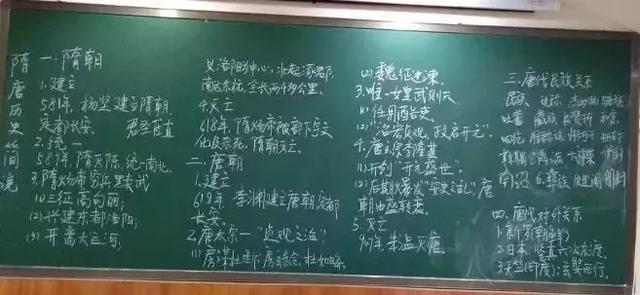 隋唐历史简说
一.隋朝
1.建立
581年,杨坚建立隋朝,
定都长安.
2.统一
589年,隋灭陈,统一南北.
3.隋炀帝穷兵黩武
(1)三征高句丽;
(2)兴建东都洛阳;
(3)开凿大运河;
以洛阳为中心,北起涿郡,
南达余杭,全长两千多公里.
4.灭亡
618年,隋炀帝被部下宇文
化及杀死,隋朝灭亡.
二.唐朝
1.建立
618年,李渊建立唐朝,定都
长安.
2.唐太宗—"贞观之治"
(2)魏征进谏.
3.唯一女皇武则天
(1)任用酷吏.
(2)"治宏贞观,政启开元".
4.唐玄宗李隆基
(1)开创"开元盛世".
(2)后期爆发"安史之乱",唐
朝由盛转衰.
5.灭亡
907年,朱温灭唐.
三.唐代民族关系
民族
吐蕃 藏族
回纥
靺鞨
南诏 彝族
四.唐代对外关系
1.新罗(朝鲜)
2.日本:鉴真六次东渡.
3.天竺(印度):玄奘西行.